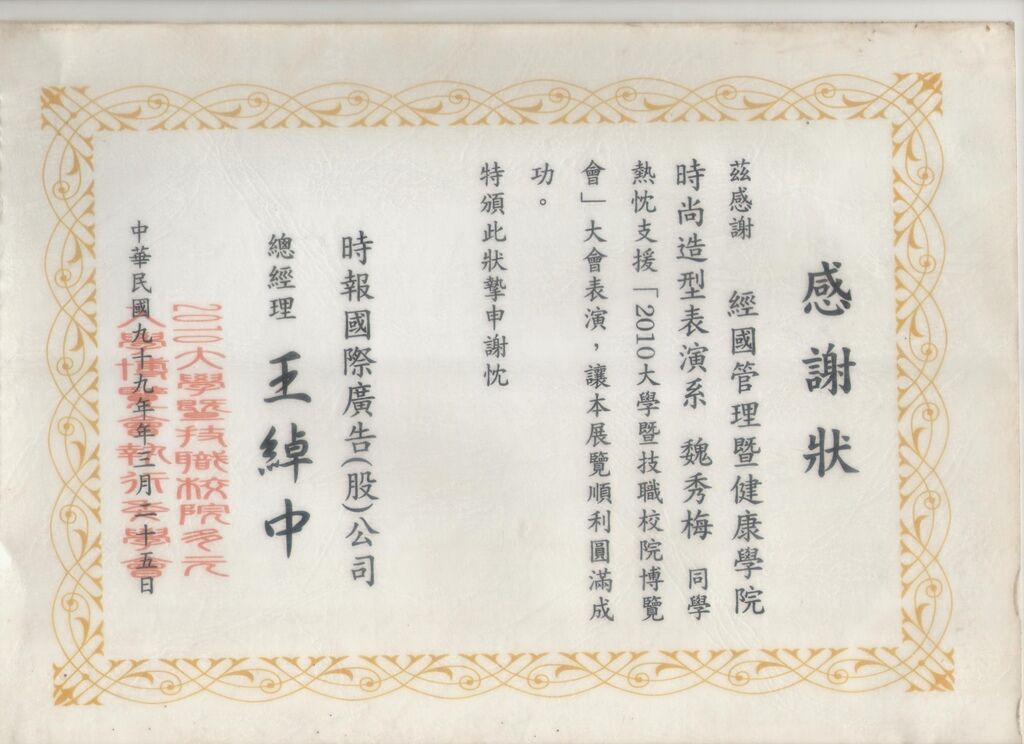 感謝狀
茲感謝 經國管理暨健康學院
時尚造型表演系 魏秀梅 同學
熱忱支援「2010大學暨技職校院博覽
會」大會表演，讓本展覽順利圓滿成
功。
特頒此狀摯申謝忱
時報國際廣告(股)公司
總經理 王綽中
2010大學暨技職校院多元
入學博覽會執行委員會
中華民國九十九年年三月二十五日